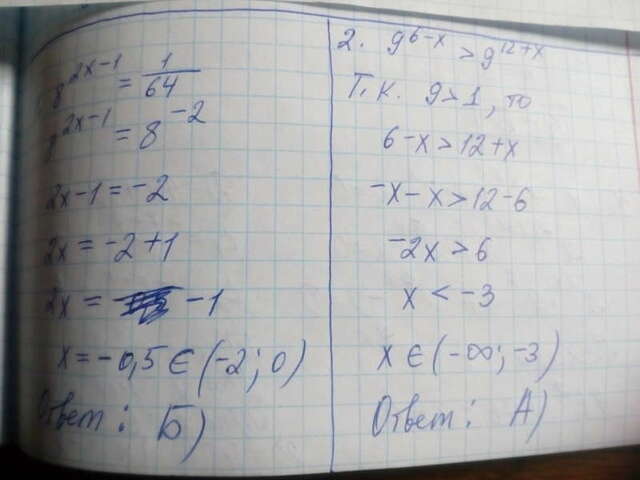 8^{2x-1} = 1/64
8^{2x-1} = 8^{-2}
2x-1 = -2
2x = -2+1
2x = -1
x = -0,5 ∈ (-2; 0)
Ответ: Б)
2. 9^{6-x} > 9^{12+x}
Т.к. 9>1, то
6-x > 12+x
-x-x > 12-6
-2x > 6
x < -3
x ∈ (-∞; -3)
Ответ: А)